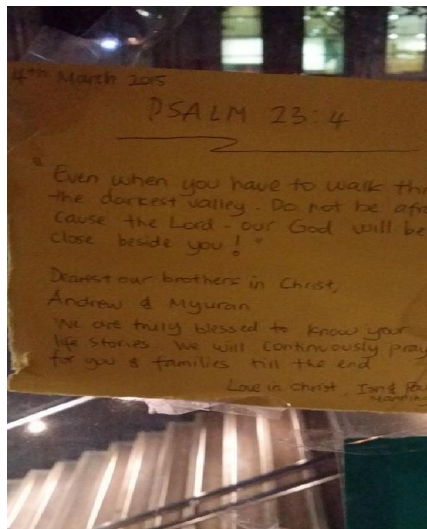 4th March 2015
PSALM 23:4
" Even when you have to walk thr
the darkest valley. Do not be afra
cause the Lord - our God will be
close beside you! "
Dearest our brothers in Christ,
Andrew & Myuran
We are truly blessed to know your
life stories. We will continuously pray
for you & families till the end
Love in Christ,